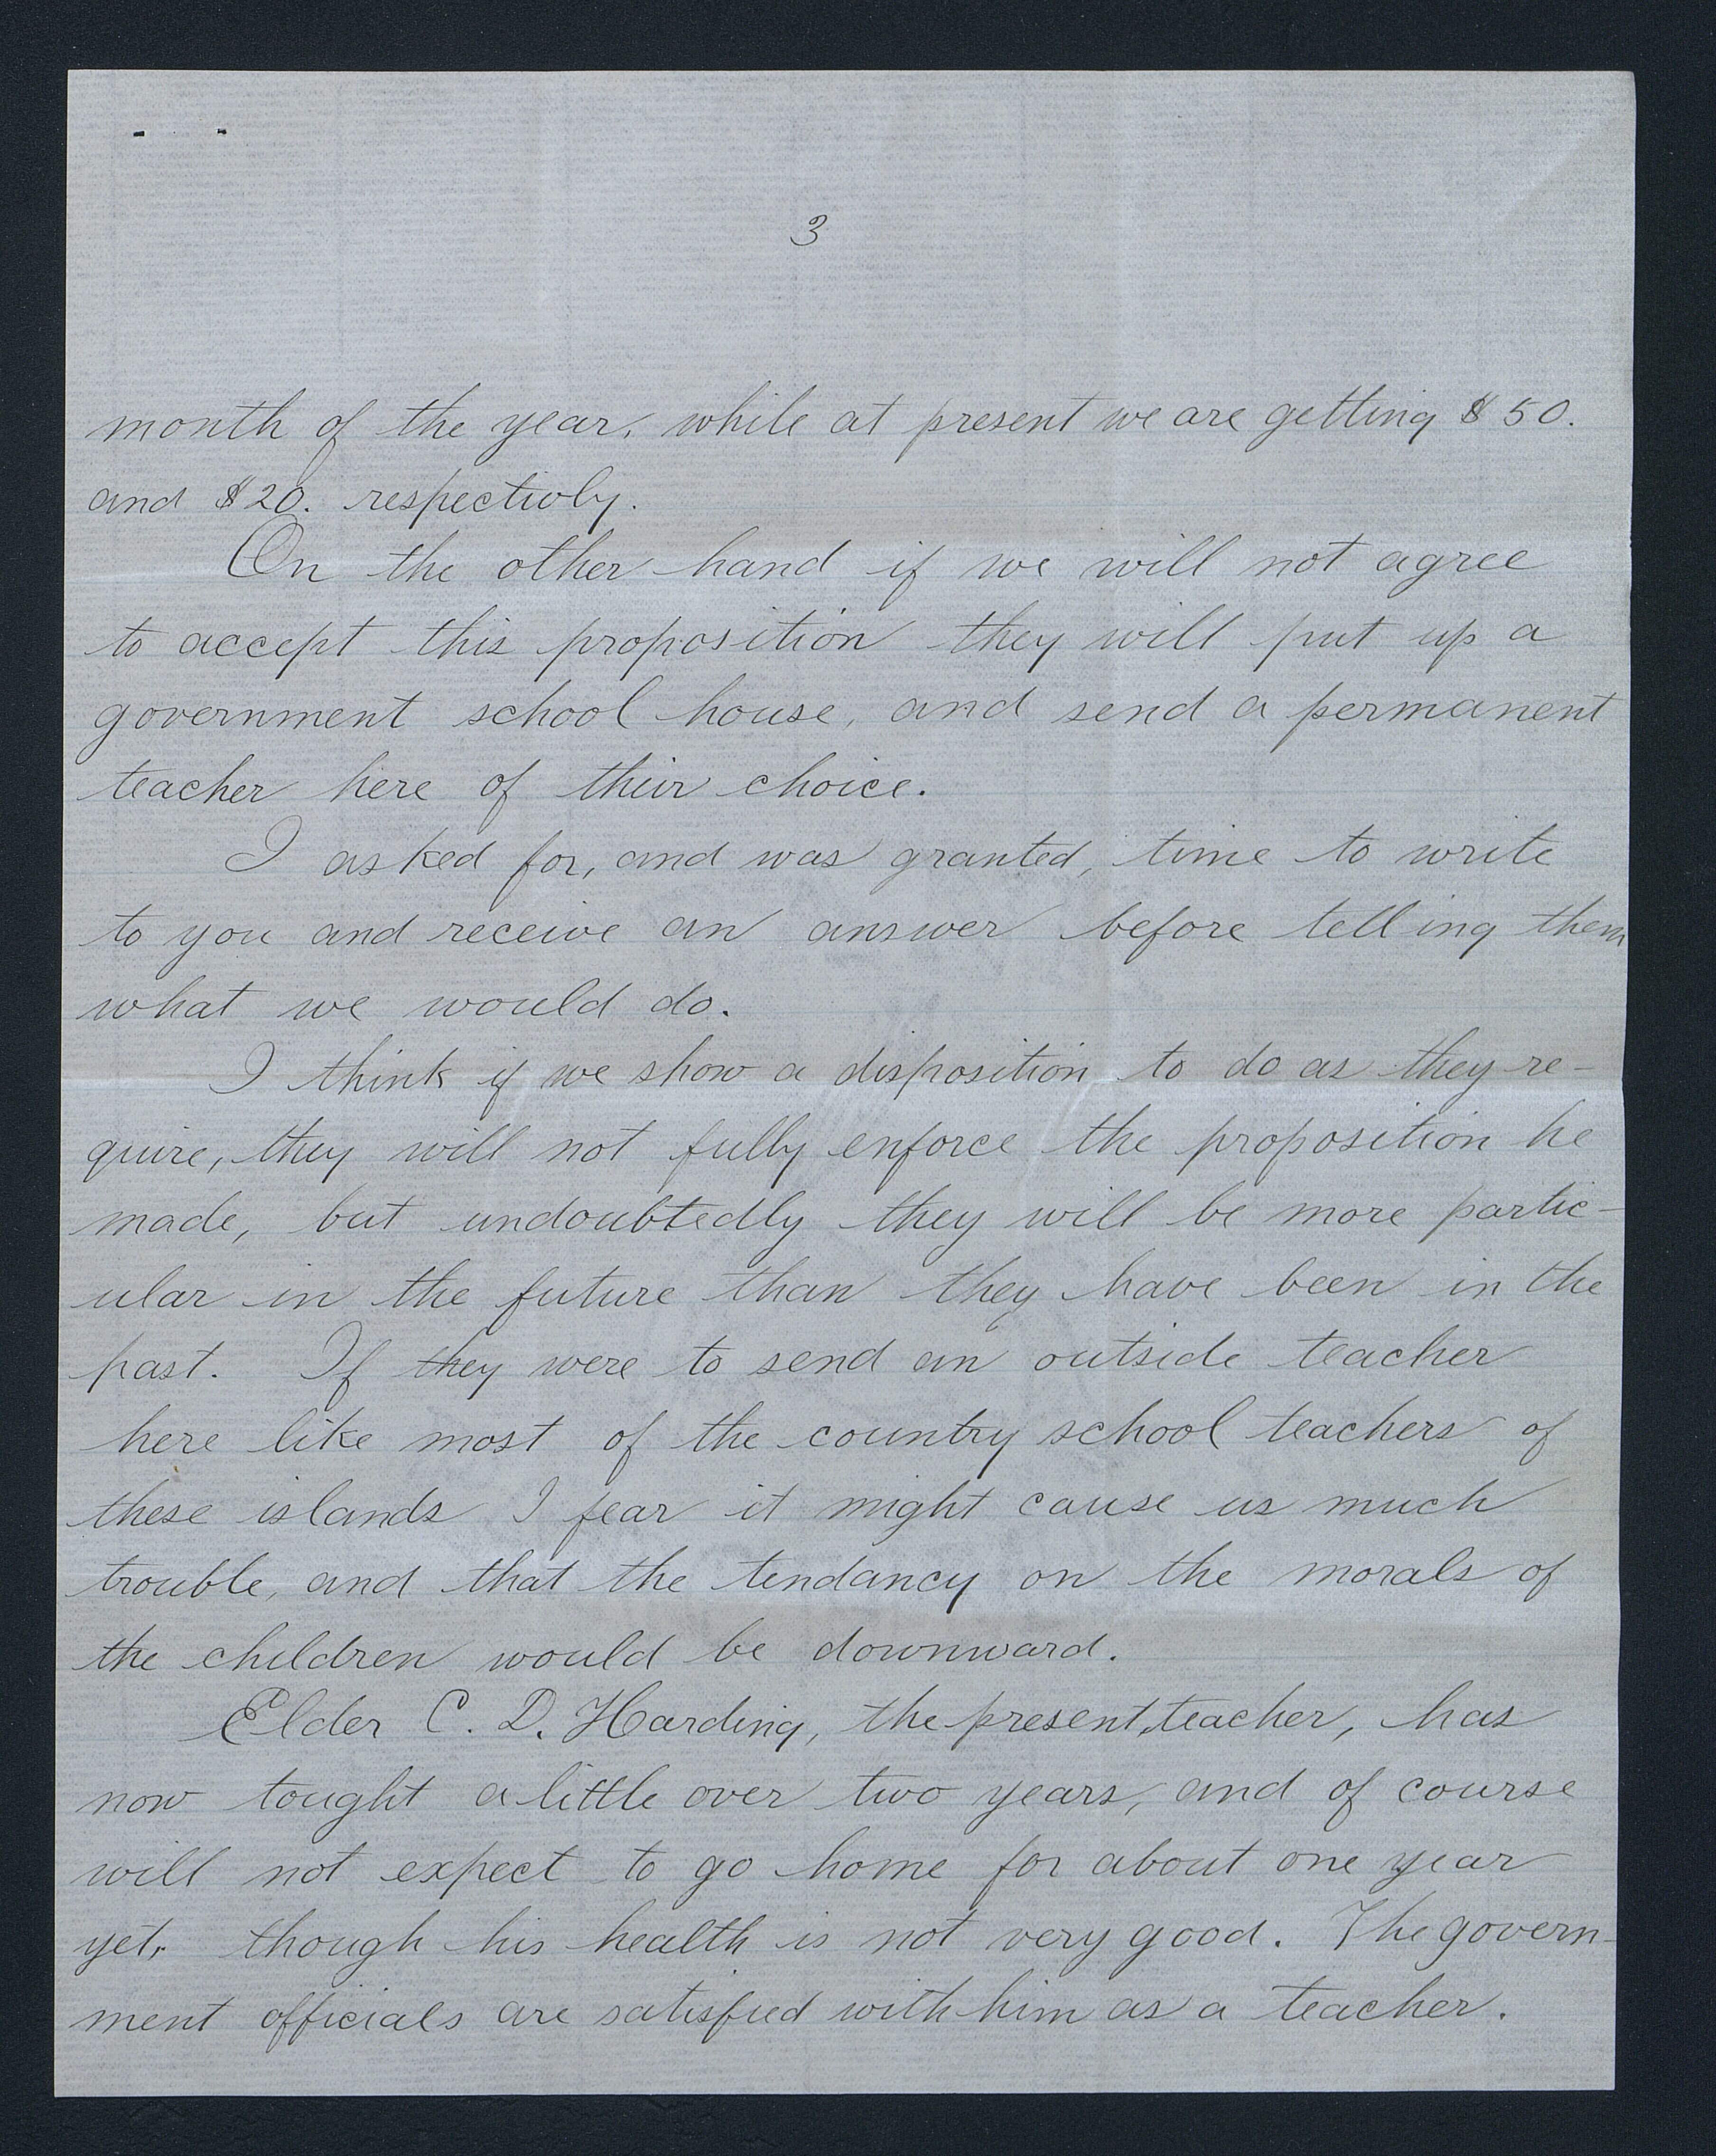 3
month of the year, while at present we are getting $50.
and $20. respectivly.
On the other hand if we will not agree
to accept this proposition they will put up a
government school house, and send a permanent
teacher here of their choice.
I asked for, and was granted, time to write
to you and receive an answer before telling them
what we would do.
I think if we show a disposition to do as they re-
quire, they will not fully enforce the proposition he
made, but undoubtedly they will be more partic-
ular in the future than they have been in the
past. If they were to send an outside teacher
here like most of the country school teachers of
these islands I fear it might cause us much
trouble, and that the tendancy on the morals of
the children would be downward.
Elder C. D. Harding, the present, teacher, has
now tought a little over two years, and of course
will not expect to go home for about one year
yet, though his health is not very good. The govern-
ment officials are satisfied with him as a teacher.